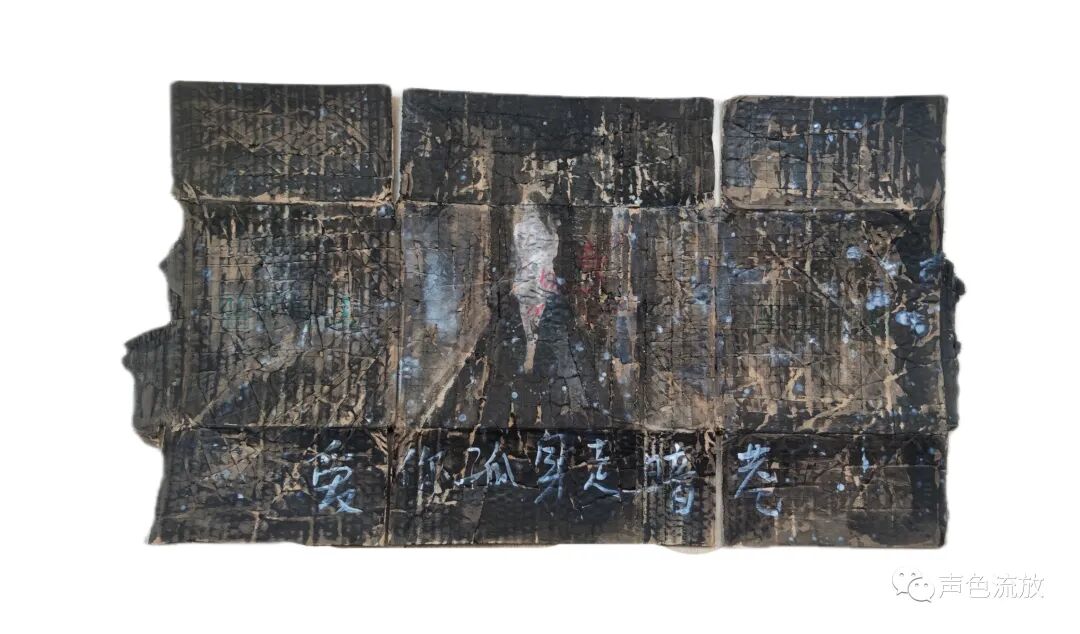 爱你孤身走暗巷
声色流放